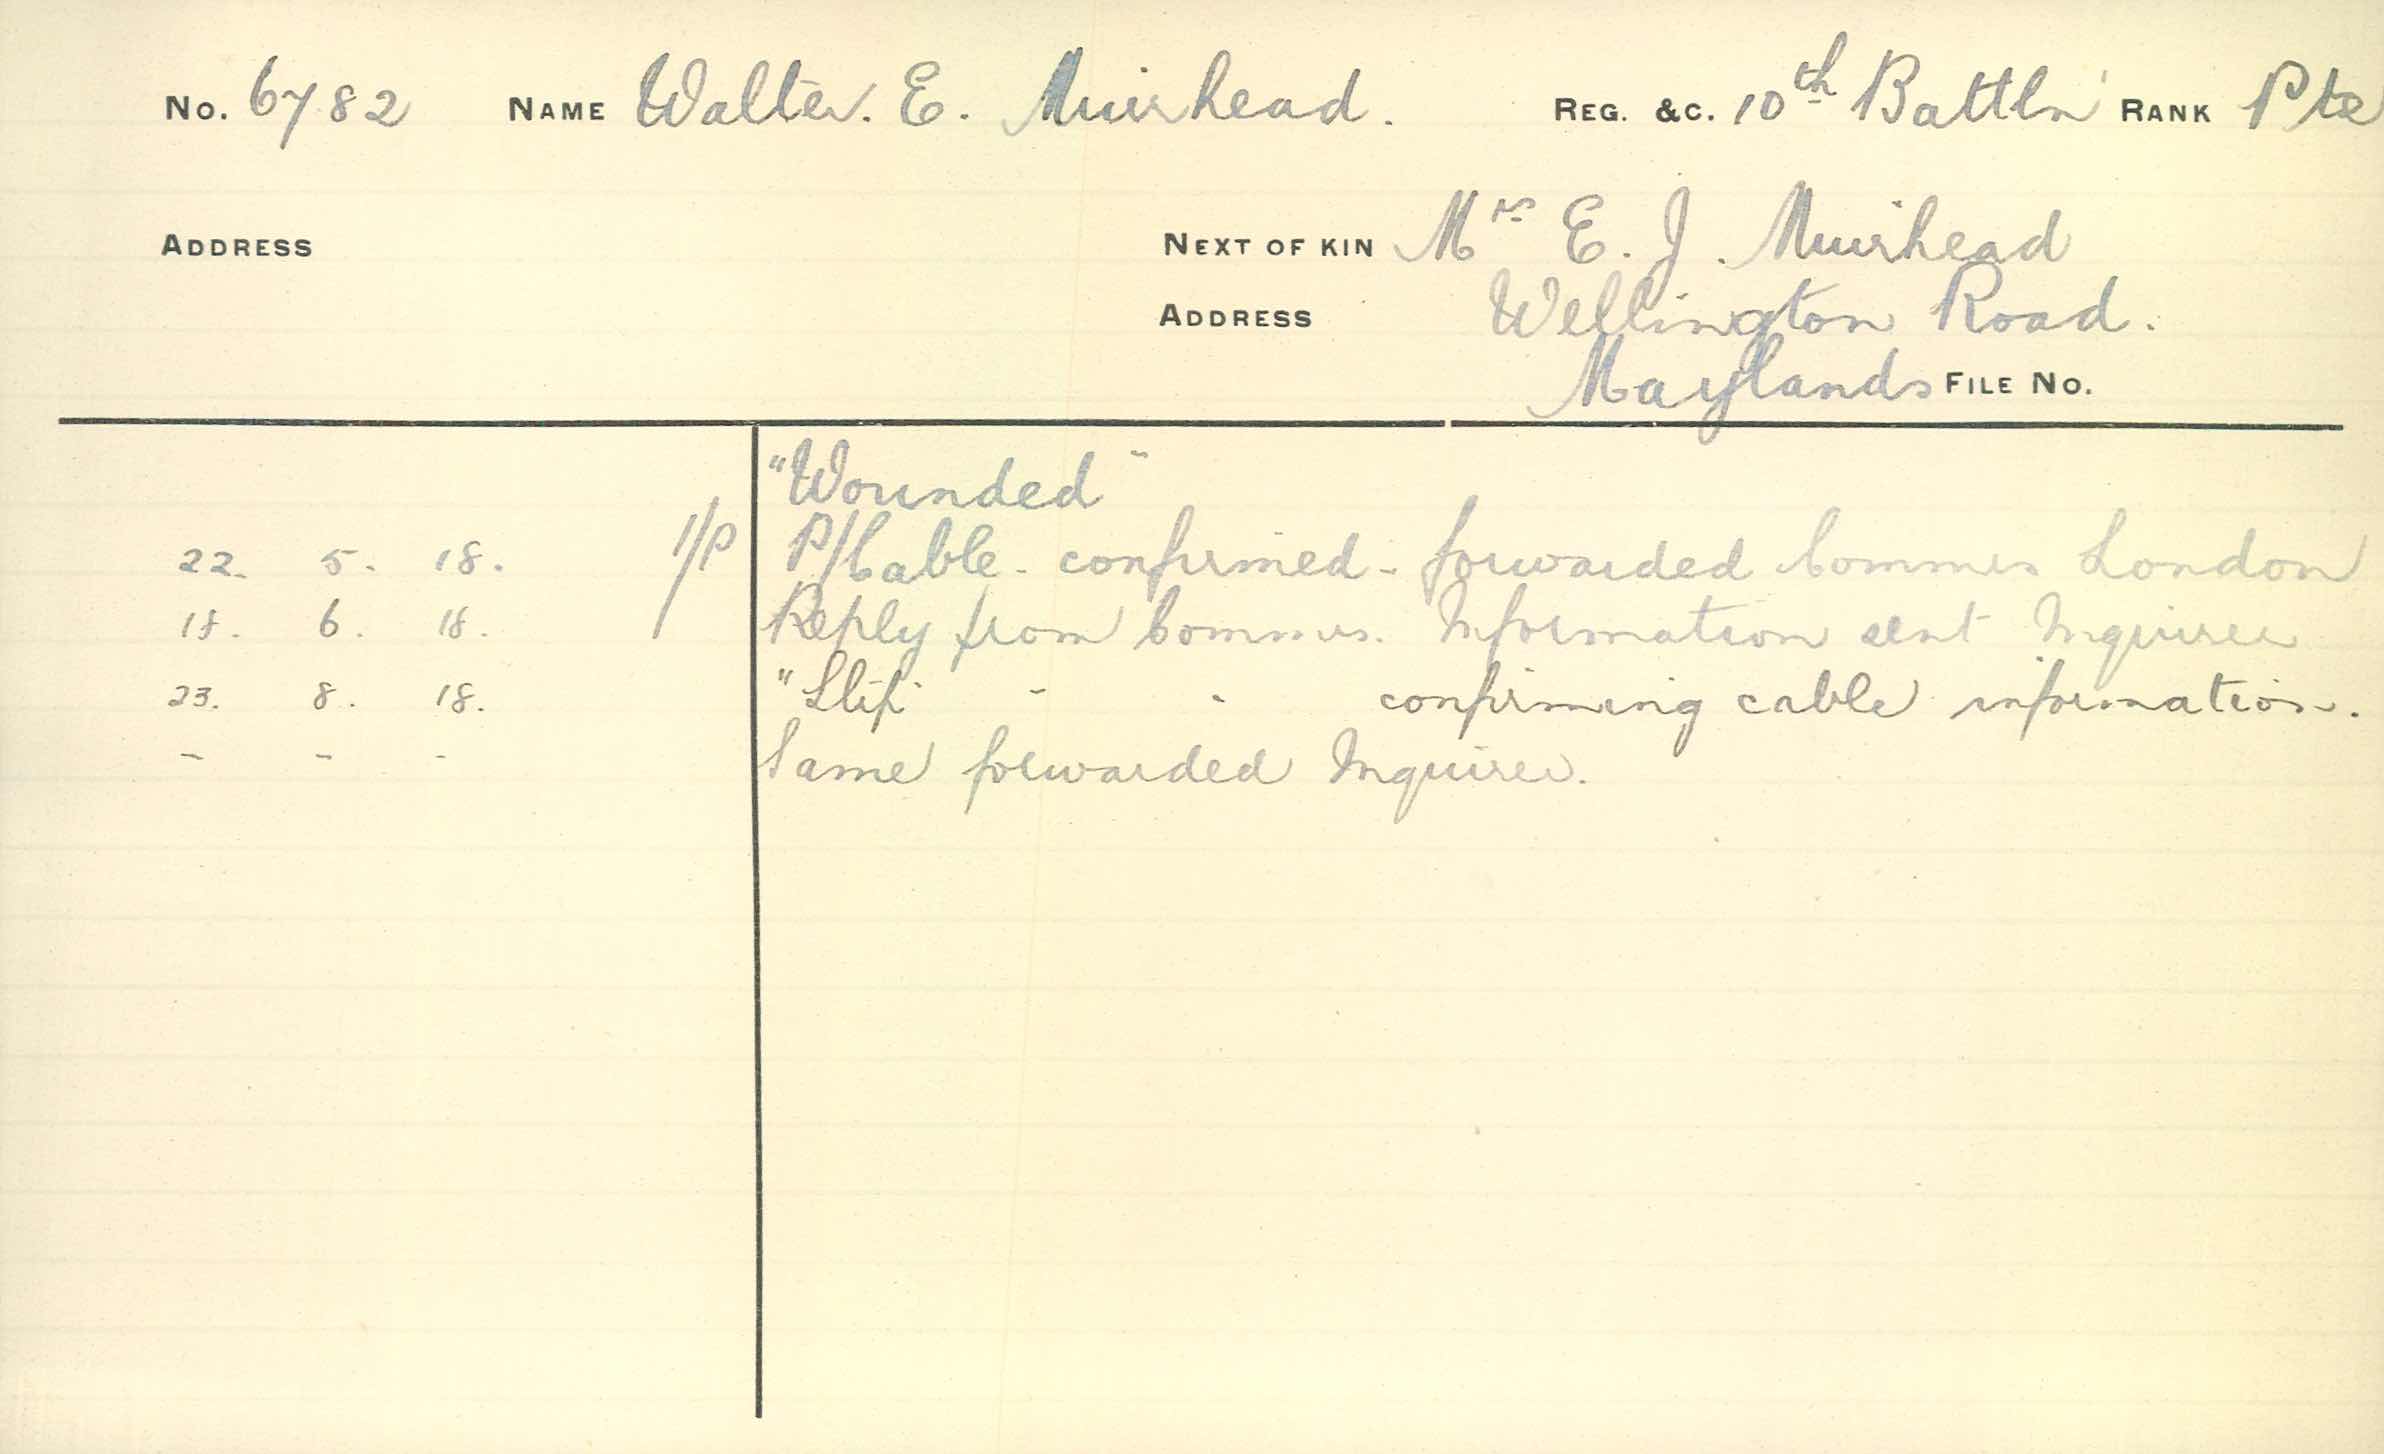 No. 6782 NAME Walter. E. Muirhead. REG. &C. 10th Battln RANK Pte
ADDRESS NEXT OF KIN Mrs E. J. Muirhead
ADDRESS Wellington Road.
Maylands FILE No.
"Wounded"
22. 5. 18. P/Cable - confirmed - forwarded Commrs London
18. 6. 18. Reply from Commrs. Information sent Inquirer
23. 8. 18. "Slip" - - confirming cable information.
- - - Same forwarded Inquirer.